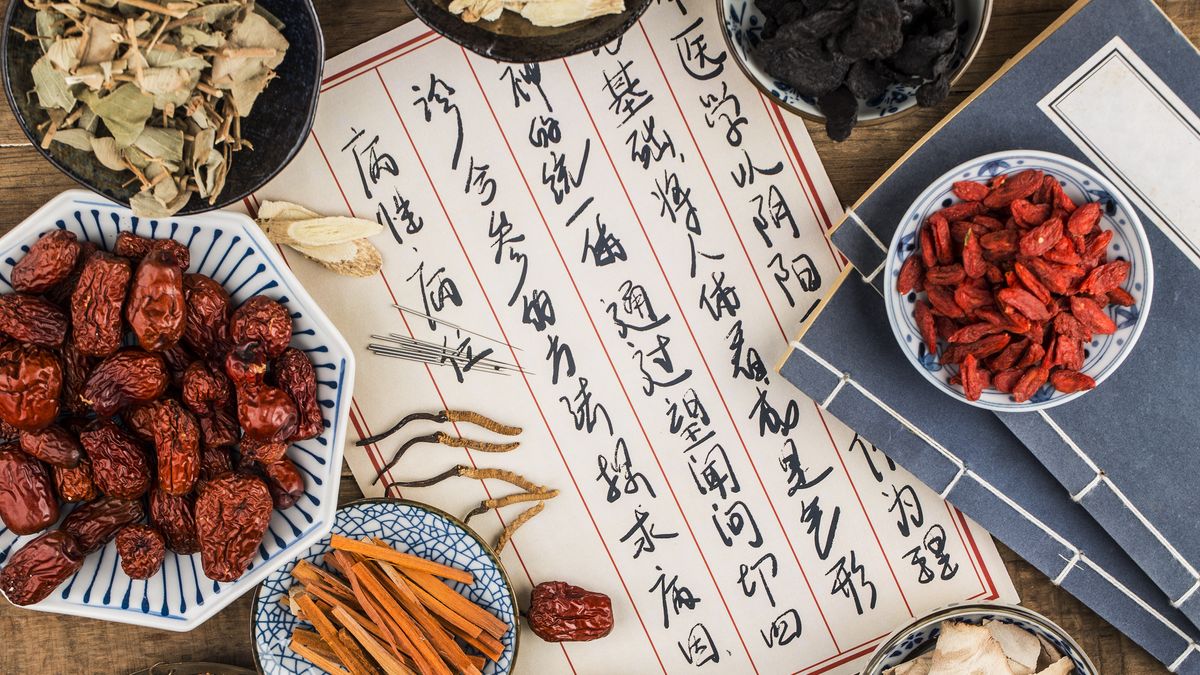 中医学以阴阳 作为理
基础,将人体看成是气形
神的统一体 通过望闻问切四
诊合参的方法探求病因、
病性、病位